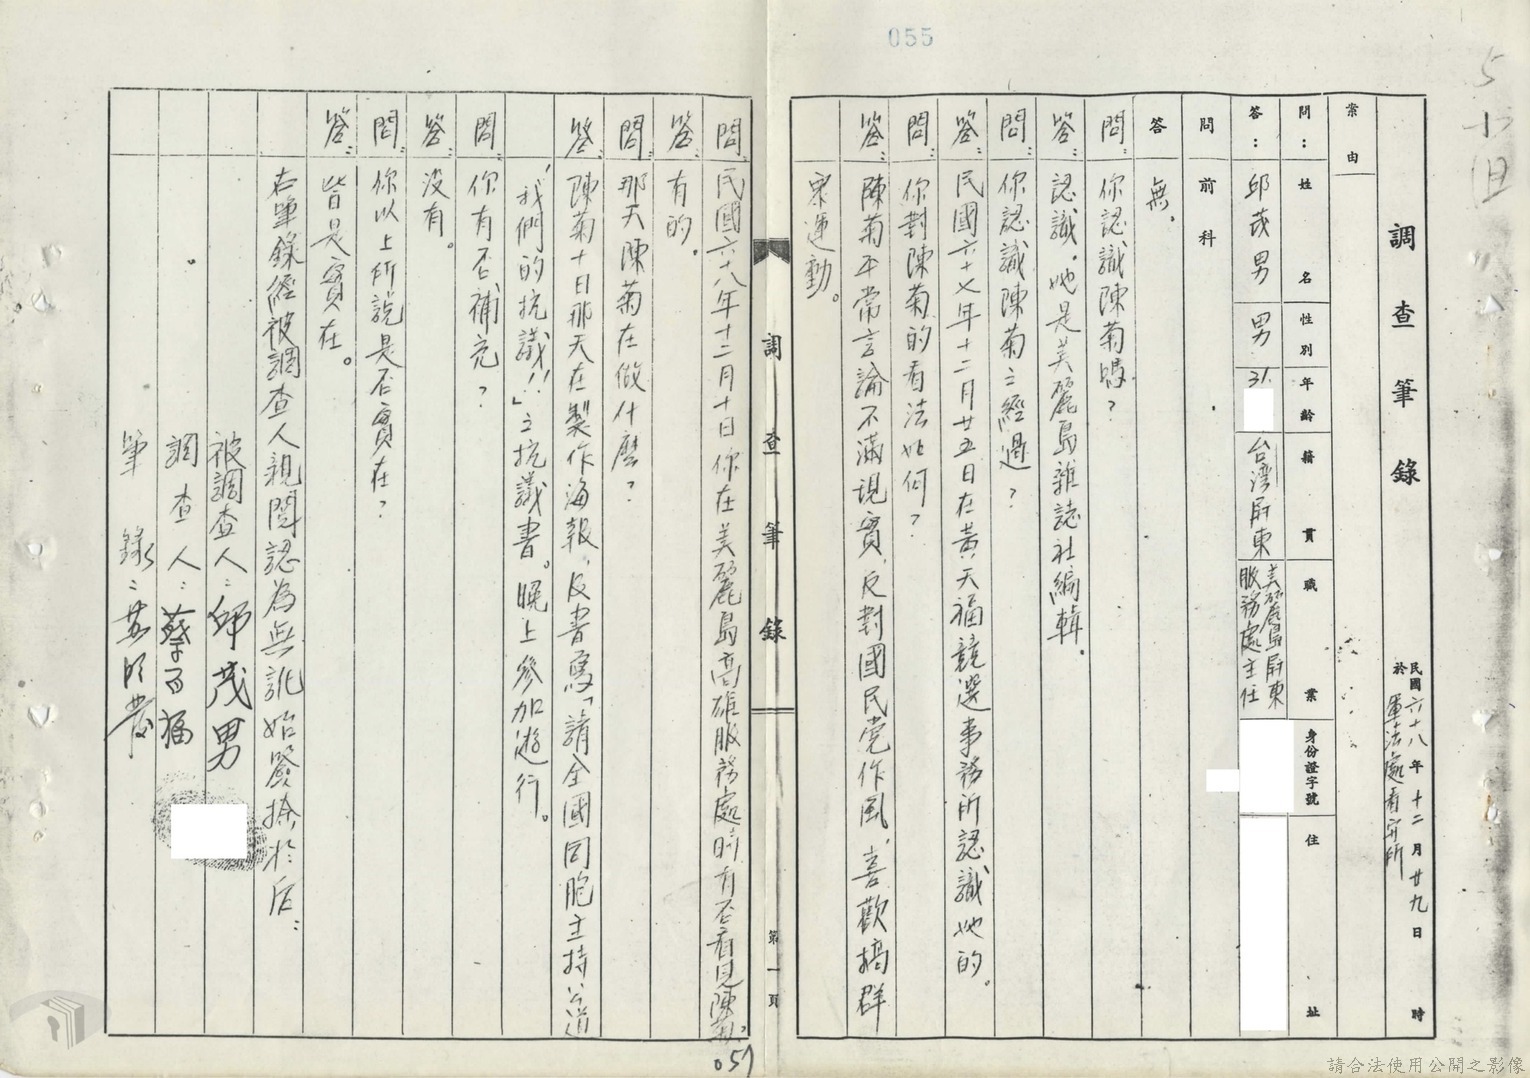 055
調查筆錄
民國六十八年十二月廿九日 時
於軍法處看守所
案由
問：姓名 性別 年齡 籍貫 職業 身份證字號 住址
答：邱茂男 男 31. 台湾屏東 美麗島屏東服務處主任
問 前科
答 無。
問：你認識陳菊嗎？
答：認識。她是美麗島雜誌社編輯。
問：你認識陳菊之經過？
答：民國六十七年十二月廿五日在黃天福競選事務所認識她的。
問：你對陳菊的看法如何？
答：陳菊平常言論不滿現實，反對國民党作風，喜歡搞群
眾運動。
調查筆錄
第一頁
問：民國六十八年十二月十日你在美麗島高雄服務處時有否看見陳菊？
答：有的。
問：那天陳菊在做什麽？
答：陳菊十日那天在製作海報，及書寫「請全國同胞主持公道
，我們的抗議！！」之抗議書。晚上參加遊行。
問：你有否補充？
答：沒有。
問：你以上所說是否實在？
答：皆是實在。
右筆錄經被調查人親閱認為無訛始簽捺於后：
被調查人：邱茂男
調查人：蔡百福
筆錄：
057
請合法使用公開之影像